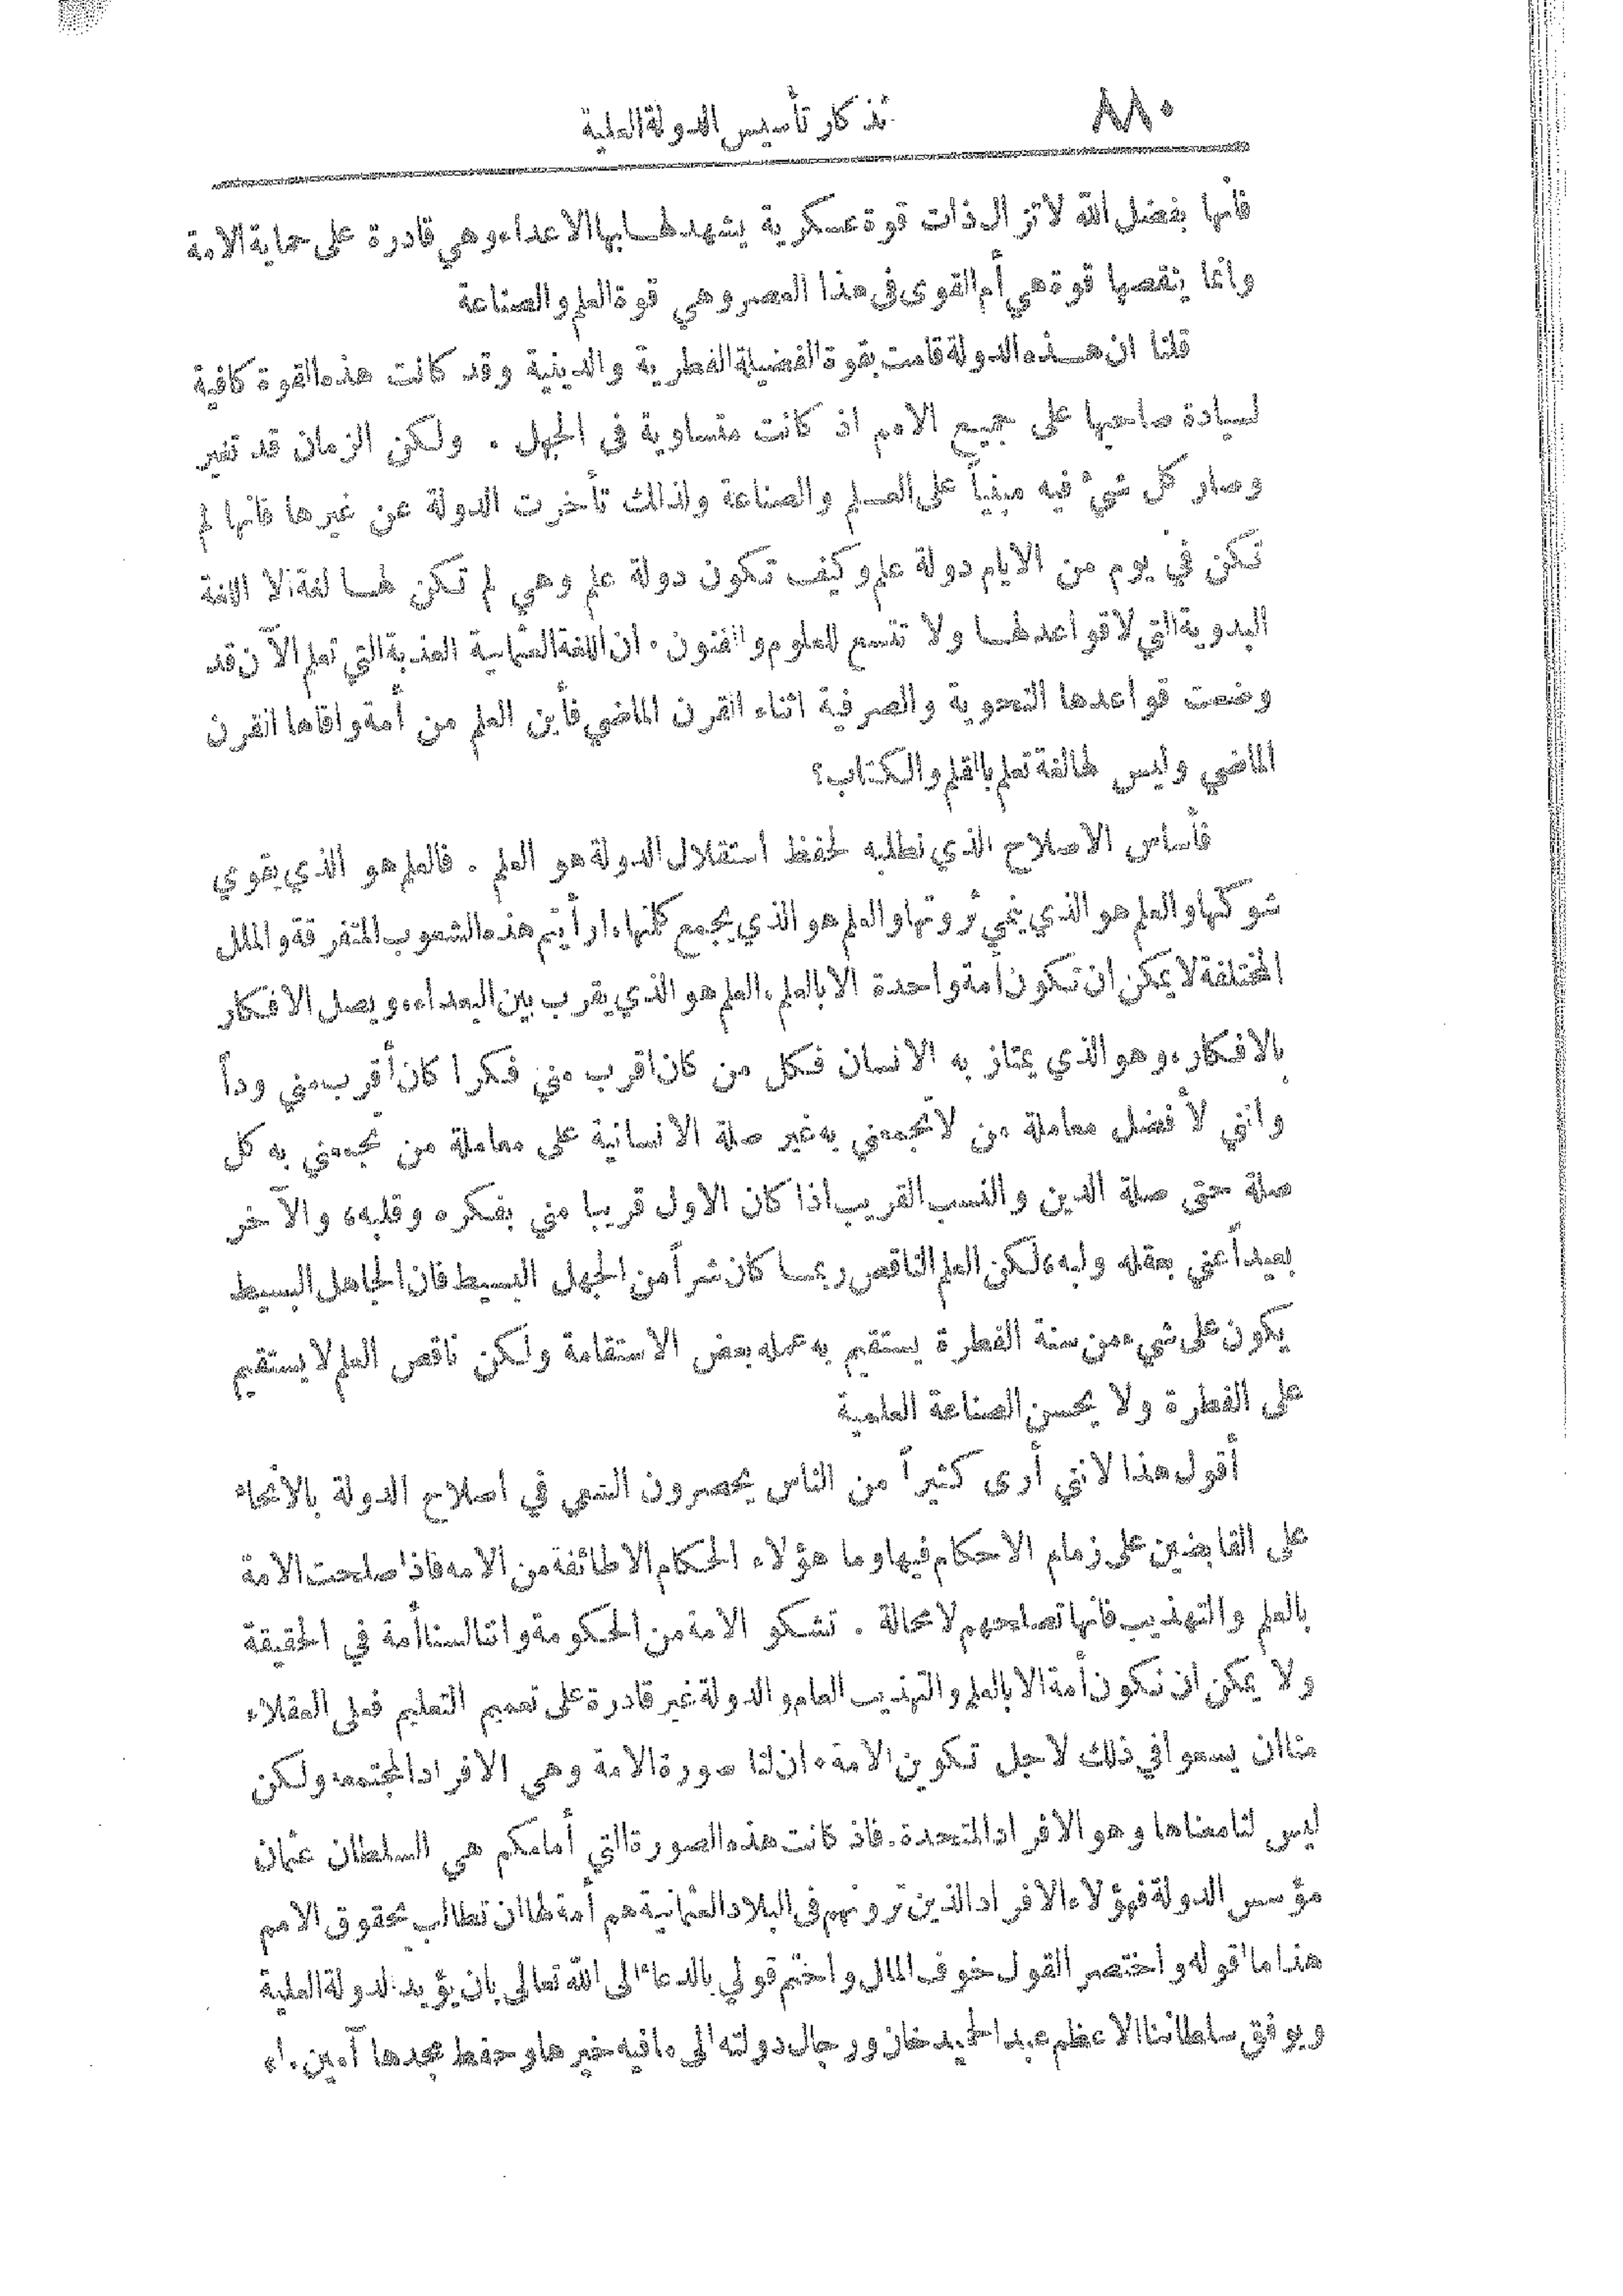 ٨٨٠ تذكار تأسيس الدولة العلية
فأنها بفضل الله لا تزال ذات قوة عسكرية يشهد لها بها الاعداء، وهي قادرة على حماية الامة
وانما ينقصها قوة هي أم القوى في هذا العصر وهي قوة العلم والصناعة
قلنا ان هذه الدولة قامت بقوة الفضيلة الفطرية والدينية وقد كانت هذه القوة كافية
لسيادة صاحبها على جميع الامم اذ كانت متساوية في الجهل . ولكن الزمان قد تغير
وصار كل شيء فيه مبنياً على العلم والصناعة ولذلك تأخرت الدولة عن غيرها فانها لم
تكن في يوم من الايام دولة علم وكيف تكون دولة علم وهي لم تكن لها لغة الا اللغة
البدوية التي لا قواعد لها ولا تتسع للعلوم والفنون . ان اللغة العثمانية العذبة التي تعلم الآن قد
وضعت قواعدها النحوية والصرفية اثناء القرن الماضي فأين العلم من أمة وافاها القرن
الماضي وليس لها لغة تعلم بالقلم والكتاب؟
فأساس الاصلاح الذي نطلبه لحفظ استقلال الدولة هو العلم . فالعلم هو الذي يقوي
شوكتها والعلم هو الذي ينمي ثروتها والعلم هو الذي يجمع كلمتها، ارأيتم هذه الشعوب المتفرقة والملل
المختلفة لا يمكن ان تكون أمة واحدة الا بالعلم، العلم هو الذي يقرب بين البعداء، ويصل الافكار
بالافكار، وهو الذي يمتاز به الانسان فكل من كان اقرب مني فكرا كان أقرب مني وداً
وانني لأفضل معاملة من لا تجمعني به غير صلة الانسانية على معاملة من تجمعني به كل
صلة حتى صلة الدين والنسب القريب اذا كان الاول قريبا مني بفكره وقلبه، والآخر
بعيداً عني بعقله ولبه، لكن العلم الناقص ربما كان شراً من الجهل البسيط فان الجاهل البسيط
يكون على شيء من سنة الفطرة يستقيم به عمله بعض الاستقامة ولكن ناقص العلم لا يستقيم
على الفطرة ولا يحسن الصناعة العلمية
أقول هذا لانني أرى كثيراً من الناس يحصرون السعي في اصلاح الدولة بالانحاء
على القابضين على زمام الاحكام فيها وما هؤلاء الحكام الا طائفة من الامه فاذا صلحت الامة
بالعلم والتهذيب فانها تصلحهم لا محالة . تشكو الامة من الحكومة واننا لسنا أمة في الحقيقة
ولا يمكن ان نكون أمة الا بالعلم والتهذيب العام، والدولة غير قادرة على تعميم التعليم فعلى العقلاء
منا ان يسعوا في ذلك لاجل تكوين الامة . ان لنا صورة الامة وهي الافراد المجتمعه ولكن
ليس لنا معناها وهو الافراد المتحدة . فاذ كانت هذه الصورة التي أمامكم هي السلطان عثمان
مؤسس الدولة فهؤلاء الافراد الذين ترونهم في البلاد العثمانية هم أمة لها ان تطالب بحقوق الامم
هذا ما اقوله واختصر القول خوف الملل واختم قولي بالدعاء الى الله تعالى بان يؤيد الدولة العلية
ويوفق سلطاننا الاعظم عبد الحميد خان ورجال دولته الى ما فيه خيرها وحفظ مجدها آمين . اه